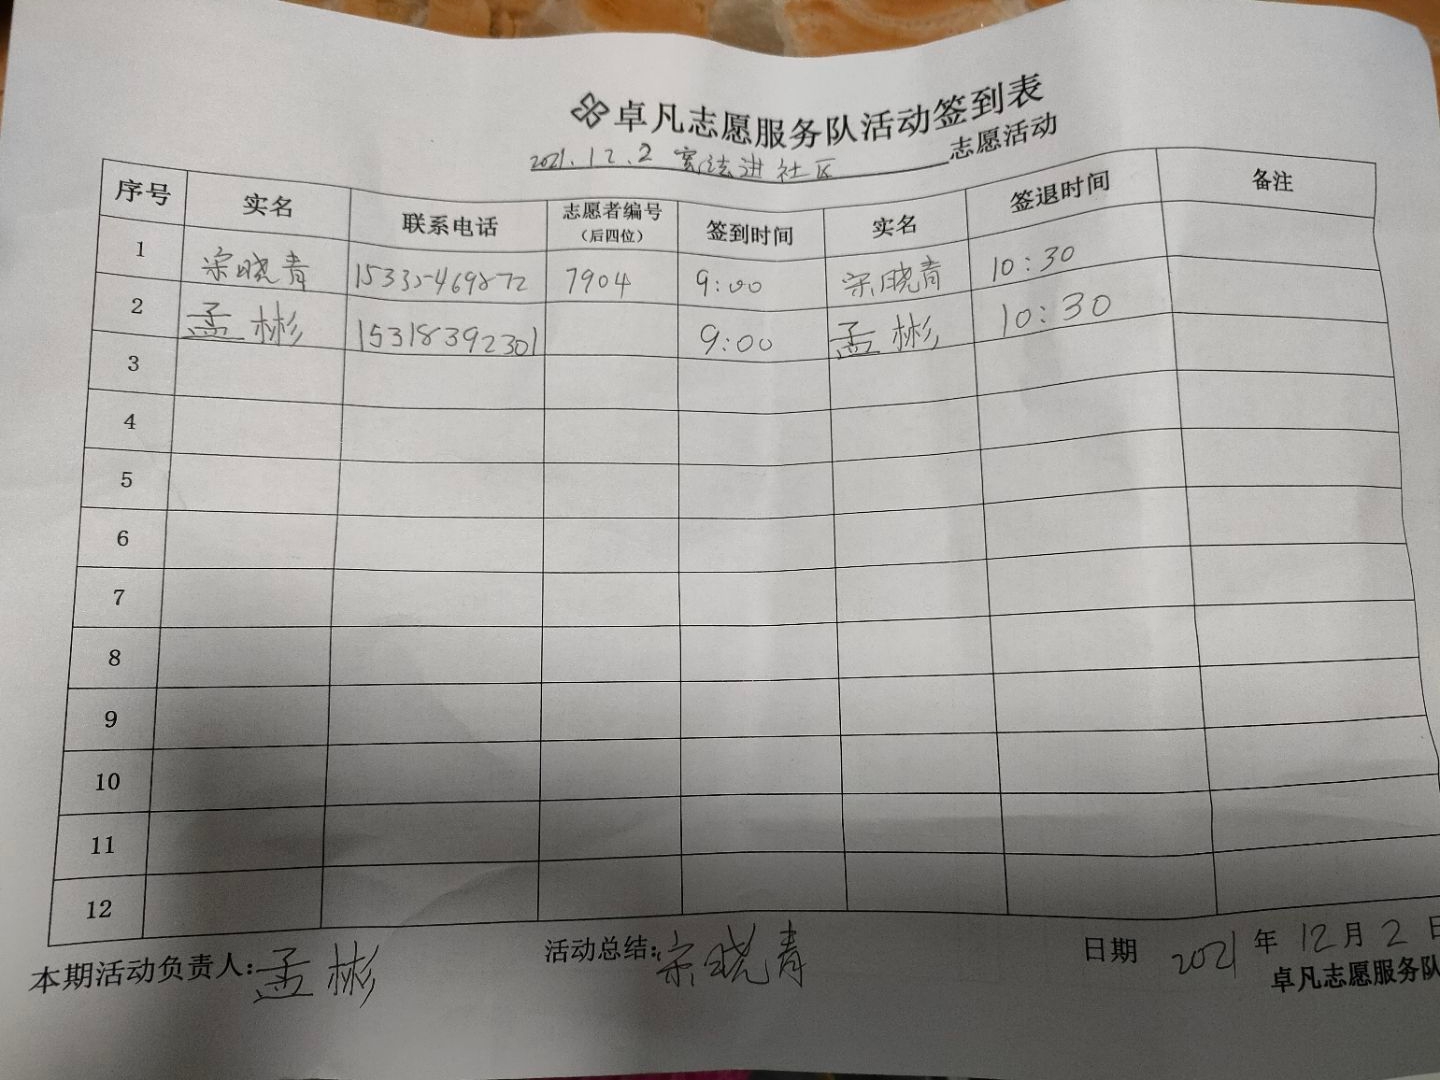 卓凡志愿服务队活动签到表
2021.12.2 宪法进社区 志愿活动
序号 实名 联系电话 志愿者编号（后四位） 签到时间 实名 签退时间 备注
1 宋晓青 15335469872 7904 9:00 宋晓青 10:30
2 孟彬 15318392301 9:00 孟彬 10:30
3
4
5
6
7
8
9
10
11
12
本期活动负责人:孟彬 活动总结:宋晓青 日期 2021年12月2日
卓凡志愿服务队